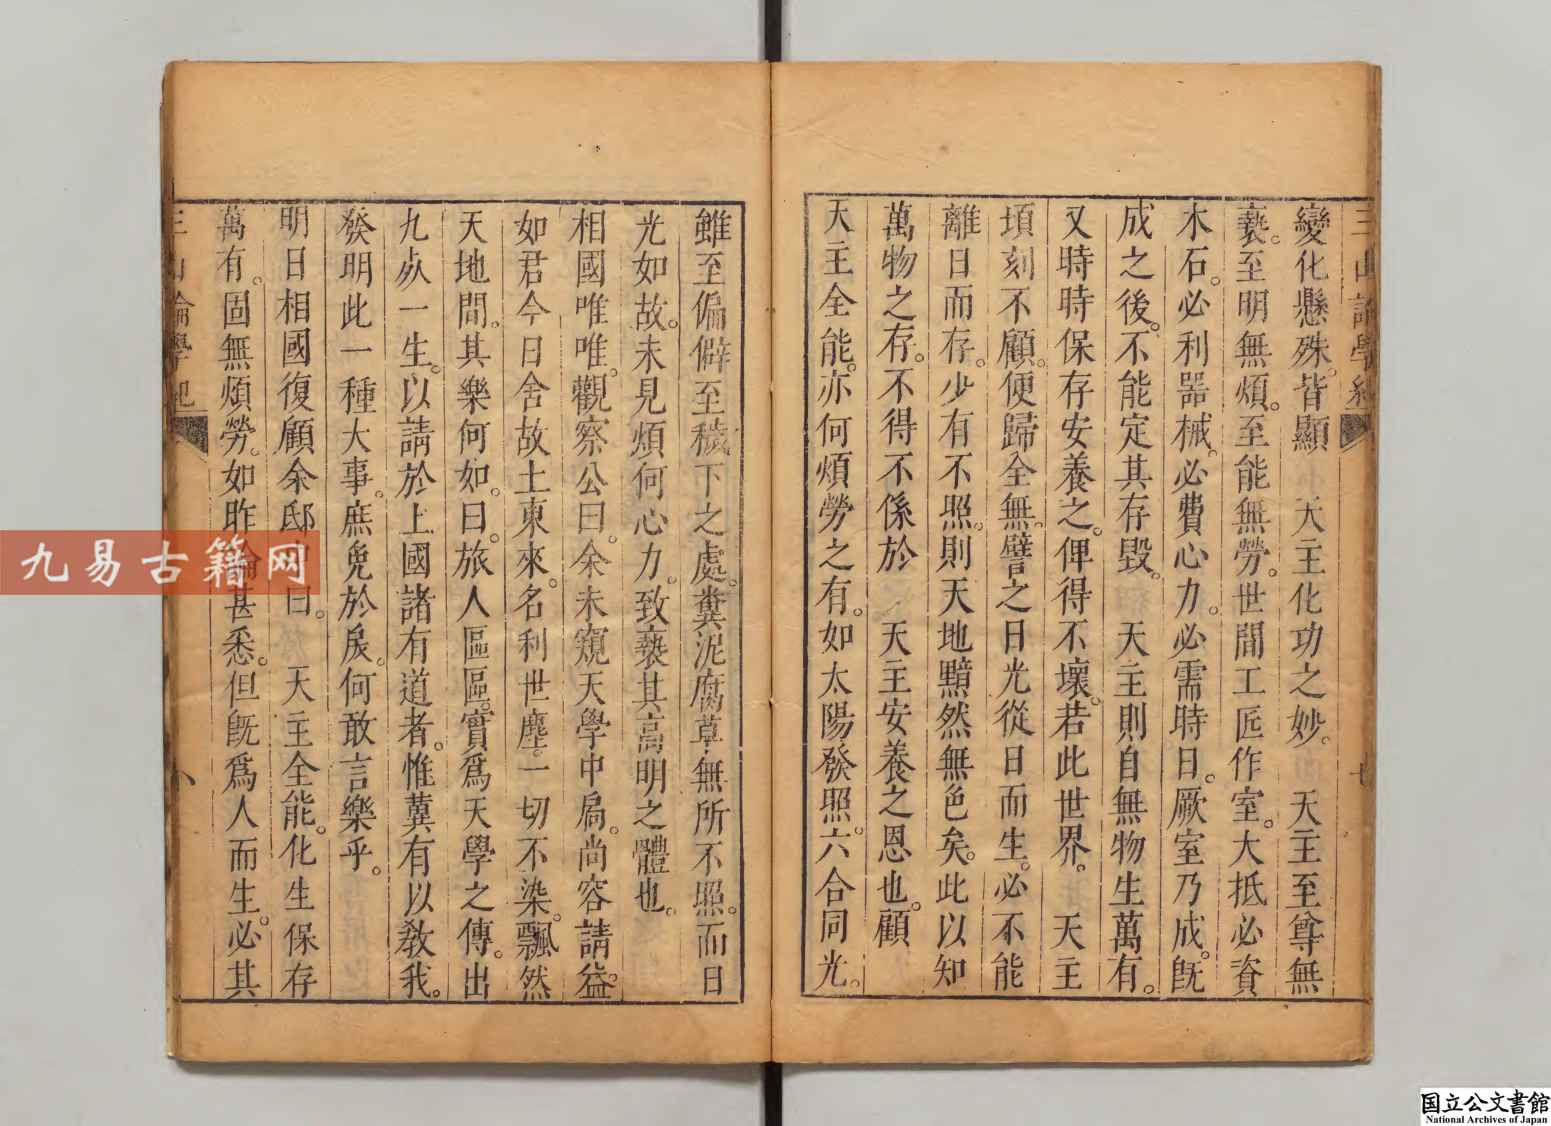 三山論學紀
變化懸殊。皆顯　天主化功之妙。　天主至尊無
褻。至明無煩。至能無勞。世間工匠作室。大抵必資
木石。必利器械。必費心力。必需時日。厥室乃成。旣
成之後。不能定其存毀。　天主則自無物生萬有。
又時時保存安養之。俾得不壞。若此世界。　天主
頃刻不顧。便歸全無。譬之日光從日而生。必不能
離日而存。少有不照。則天地黯然無色矣。此以知
萬物之存。不得不係於　天主安養之恩也。顧
天主全能。亦何煩勞之有。如太陽發照。六合同光。
雖至偏僻至穢下之處。糞泥腐草。無所不照。而日
光如故。未見煩何心力。致褻其高明之體也。
相國唯唯。觀察公曰。余未窺天學中扃。尚容請益。
如君今日舍故土東來。名利世塵。一切不染。飄然
天地間。其樂何如。曰。旅人區區。實爲天學之傳。出
九死一生。以請於上國諸有道者。惟冀有以敎我。
發明此一種大事。庶免於戾。何敢言樂乎。
明日相國復顧余邸　曰。　天主全能。化生保存
萬有。固無煩勞。如昨論甚悉。但旣爲人而生。必其
三山論學紀
八
九易古籍网
国立公文書館
National Archives of Japan